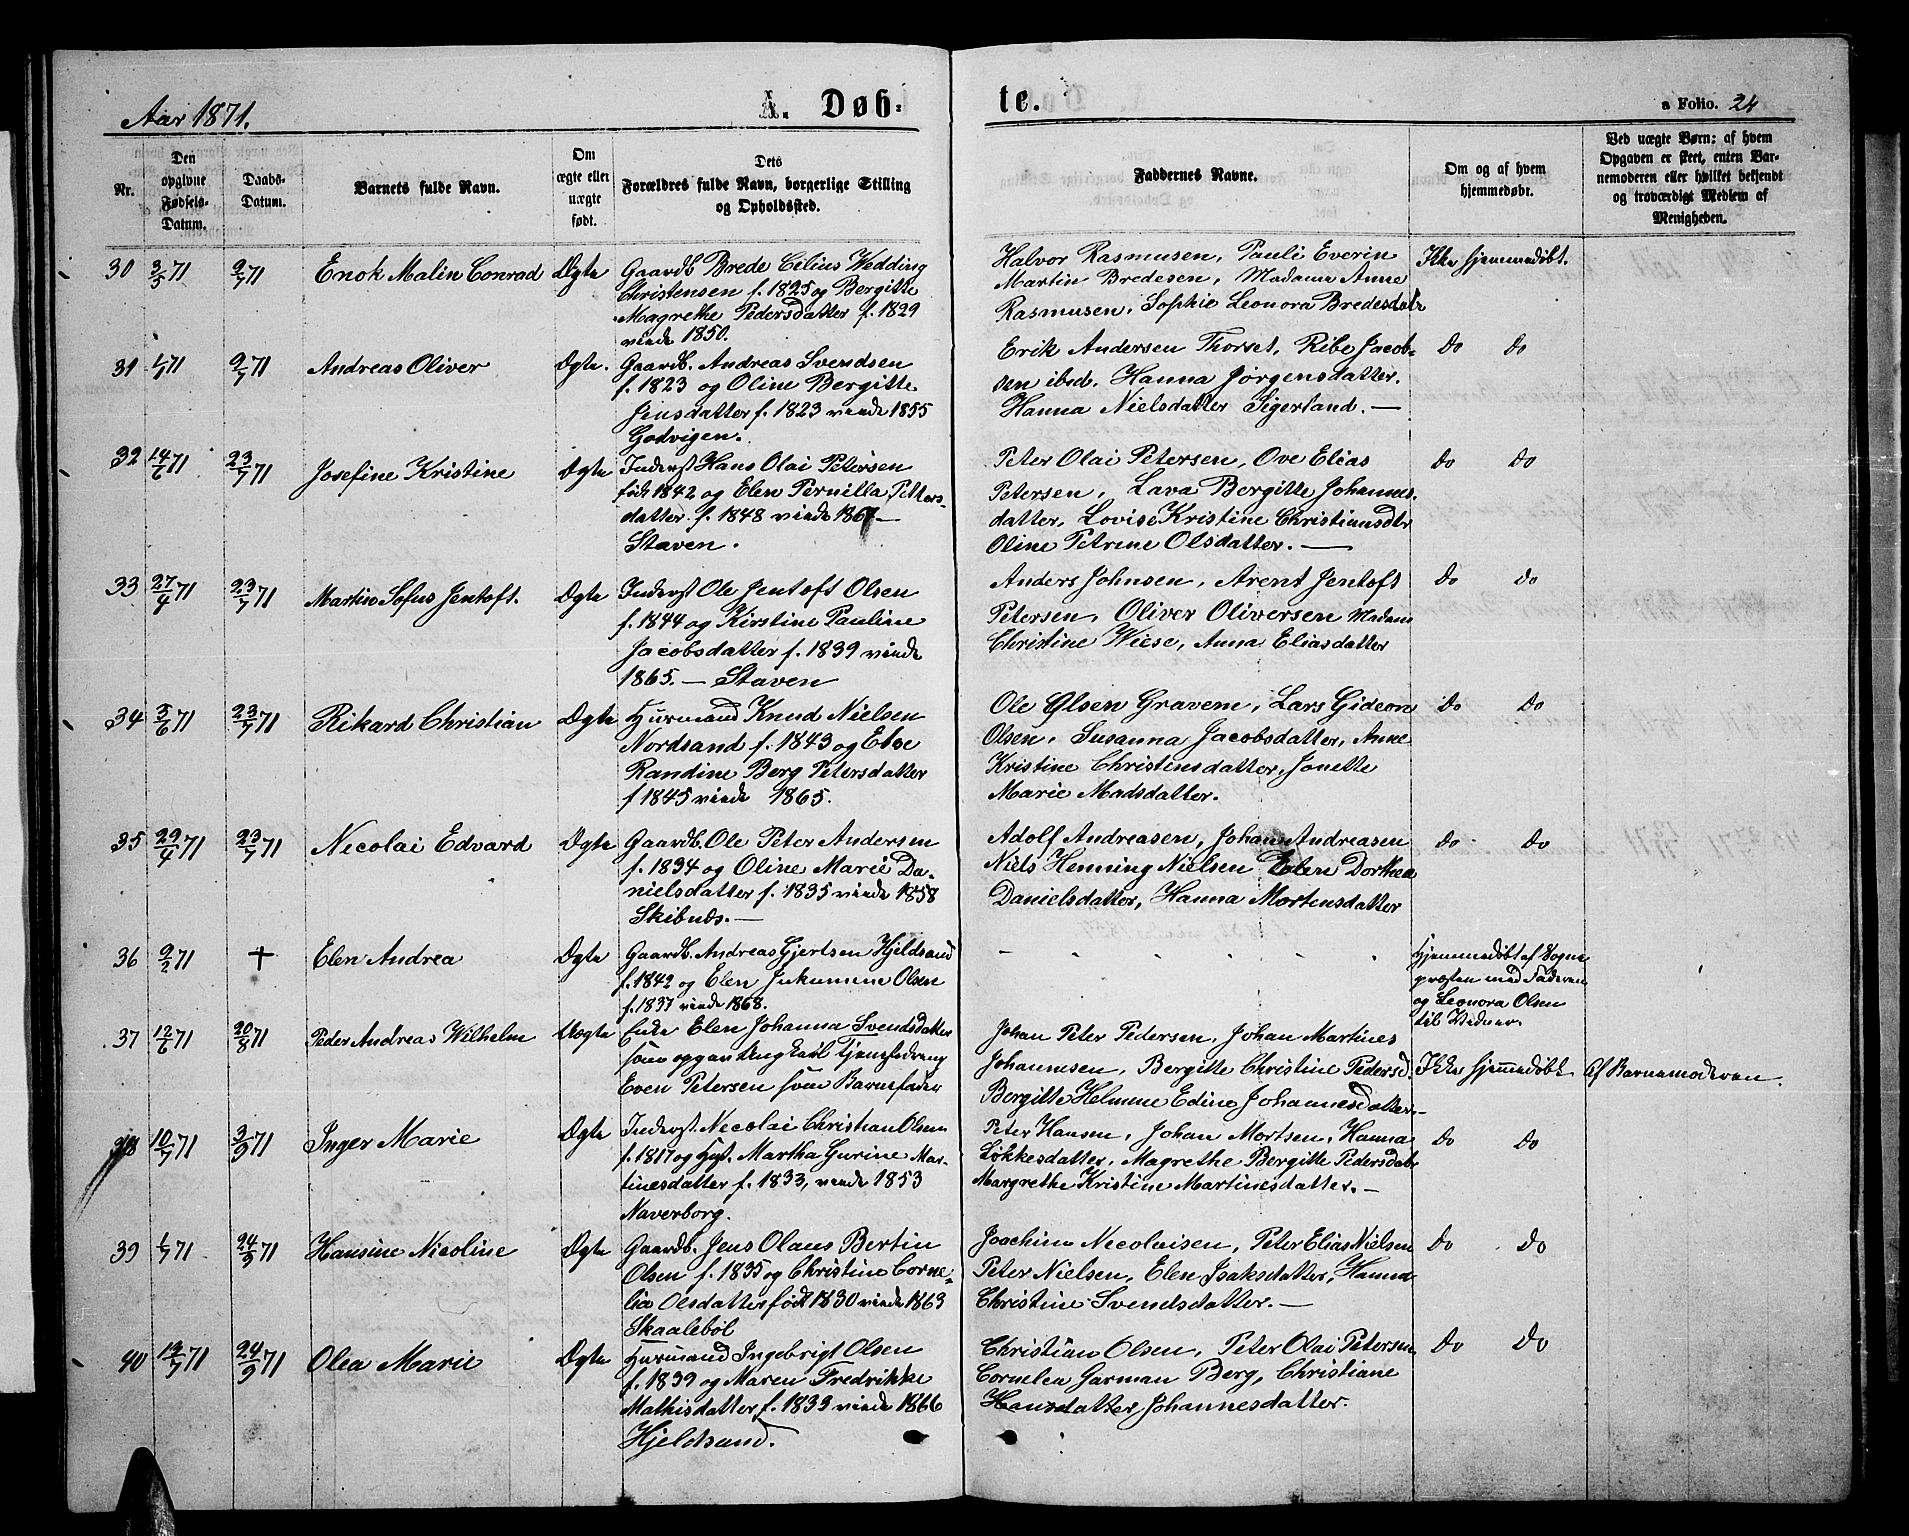 Aar 1871.
A. Døb-
te.
a Folio. 24
Nr.
Den opgivne Fødsels-Datum.
Daabs-Datum.
Barnets fulde Navn.
Om ægte eller uægte født.
Dets Forældres fulde Navn, borgerlige Stilling og Opholdssted.
Faddernes Navne.
Om og af hvem hjemmedøbt.
Ved uægte Børn: af hvem Opgaven er skeet, enten Barnemoderen eller hvilket bekjendt og troværdigt Medlem af Menigheden.
30 3/5 71 9/7 71 Enok Malin Conrad Ægte
Gaardb Brede Cilius Wedding
Christensen f. 1825 og Bergitte
Magrethe Pedersdatter f. 1829
viede 1850.
Halvor Rasmusen, Pauli Everin
Martin Bredesen, Madame Anne
Rasmusen, Sophie Leonora Bredesdatr
Ikke hjemmedøbt.
31 1/7 71 9/7 71 Andreas Oliver Ægte.
Gaardb. Andreas Svendsen
f. 1823 og Oline Bergitte
Jensdatter f. 1823 viede 1855
Godvigen.
Erik Andersen Thorset, Ribe Jacob-
sen ibed. Hanna Jørgensdatter.
Hanna Nielsdatter Sigerland. —
Do Do
32 14/6 71 23/7 71 Josefine Kristine Ægte
Inderst Hans Olai Petersen
født 1842 og Elen Pernilla Petters-
datter f. 1848 viede 1867 —
Staven.
Peter Olai Petersen, Ove Elias
Petersen, Lava Bergitte Johannes-
datter, Lovise Kristine Christiansdtr
Oline Petrine Olsdatter. —
Do Do
33 27/4 71 23/7 71 Martin Sofus Jentoft. Ægte
Inderst Ole Jentoft Olsen
f. 1844 og Kirstine Pauline
Jacobsdatter f. 1839 viede
1865. — Staven
Anders Johnsen, Arent Jentoft
Petersen, Oliver Oliversen Madam
Christine Wiese, Anna Eliasdatter
Do Do
34 3/6 71 23/7 71 Rikard Christian Ægte
Huusmand Knud Nielsen
Nordsand f. 1843 og Else
Randine Berg Petersdatter
f 1845 viede 1865.
Ole Olsen Gravene, Lars Gideon
Olsen, Susanna Jacobsdatter, Anne
Kristine Christensdatter, Jonette
Marie Madsdatter.
Do Do
35 29/4 71 23/7 71 Necolai Edvard Ægte
Gaardb. Ole Peter Andersen
f. 1834 og Oline Marie Da-
nielsdatter f. 1835 viede 1858
Skibnæs. —
Adolf Andreasen, Johan Andreasen
Niels Henning Nielsen Elen Dorthea
Danielsdatter, Hanna Mortensdatter
Do Do
36 9/2 71 + Elen Andrea Ægte
Gaardb. Andreas Gjertsen Hjeldsand
f. 1842 og Elen Jukumine Olsen
f. 1837 viede 1868.
Hjemmedøbt af Sogne
præsten med Faderen
og Leonora Olsen
til Vidner.
37 12/6 71 20/8 71 Peder Andreas Wilhelm Uægte
Enke Elen Johanna Svendsdatter
som opgav Ungkarl Tjenestedreng
Even Petersen som Barnefader
Johan Peter Pedersen, Johan Martines
Johannesen, Bergitte Christine Pedersd.
Bergitte Helmine Edine Johannesdatter. —
Ikke hjemmedøbt Af Barnemoderen.
38 10/7 71 3/9 71 Inger Marie Ægte
Inderst Necolai Christian Olsen
f. 1817 og Hust. Martha Gurine Mar-
tinesdatter f. 1833, viede 1853
Naverborg.
Peter Hansen, Johan Mortsen, Hanna
Løkkesdatter, Magrethe Bergitte Pedersdatr
Margrethe Kristine Martinesdatter. —
Do Do
39 1/7 71 24/9 71 Hansine Nicoline Ægte
Gaardb. Jens Olaus Bertin
Olsen f. 1835 og Christine Corne-
lia Olsdatter født 1830 viede 1863
Skaalebøl
Joachim Necolaisen, Peter Elias Nielsen
Peter Nielsen, Elen Isaksdatter, Hanna
Christine Svendsdatter. —
Do Do
40 19/7 71 24/9 71 Olea Marie Ægte
Huusmand Ingebrigt Olsen
f. 1839 og Maren Fredrikke
Mathisdatter f. 1839 viede 1866
Hjeldsand.
Christian Olsen, Peter Olai Petersen
Cornelea Garman Berg, Christiane
Hansdatter Johannesdatter.
Do Do